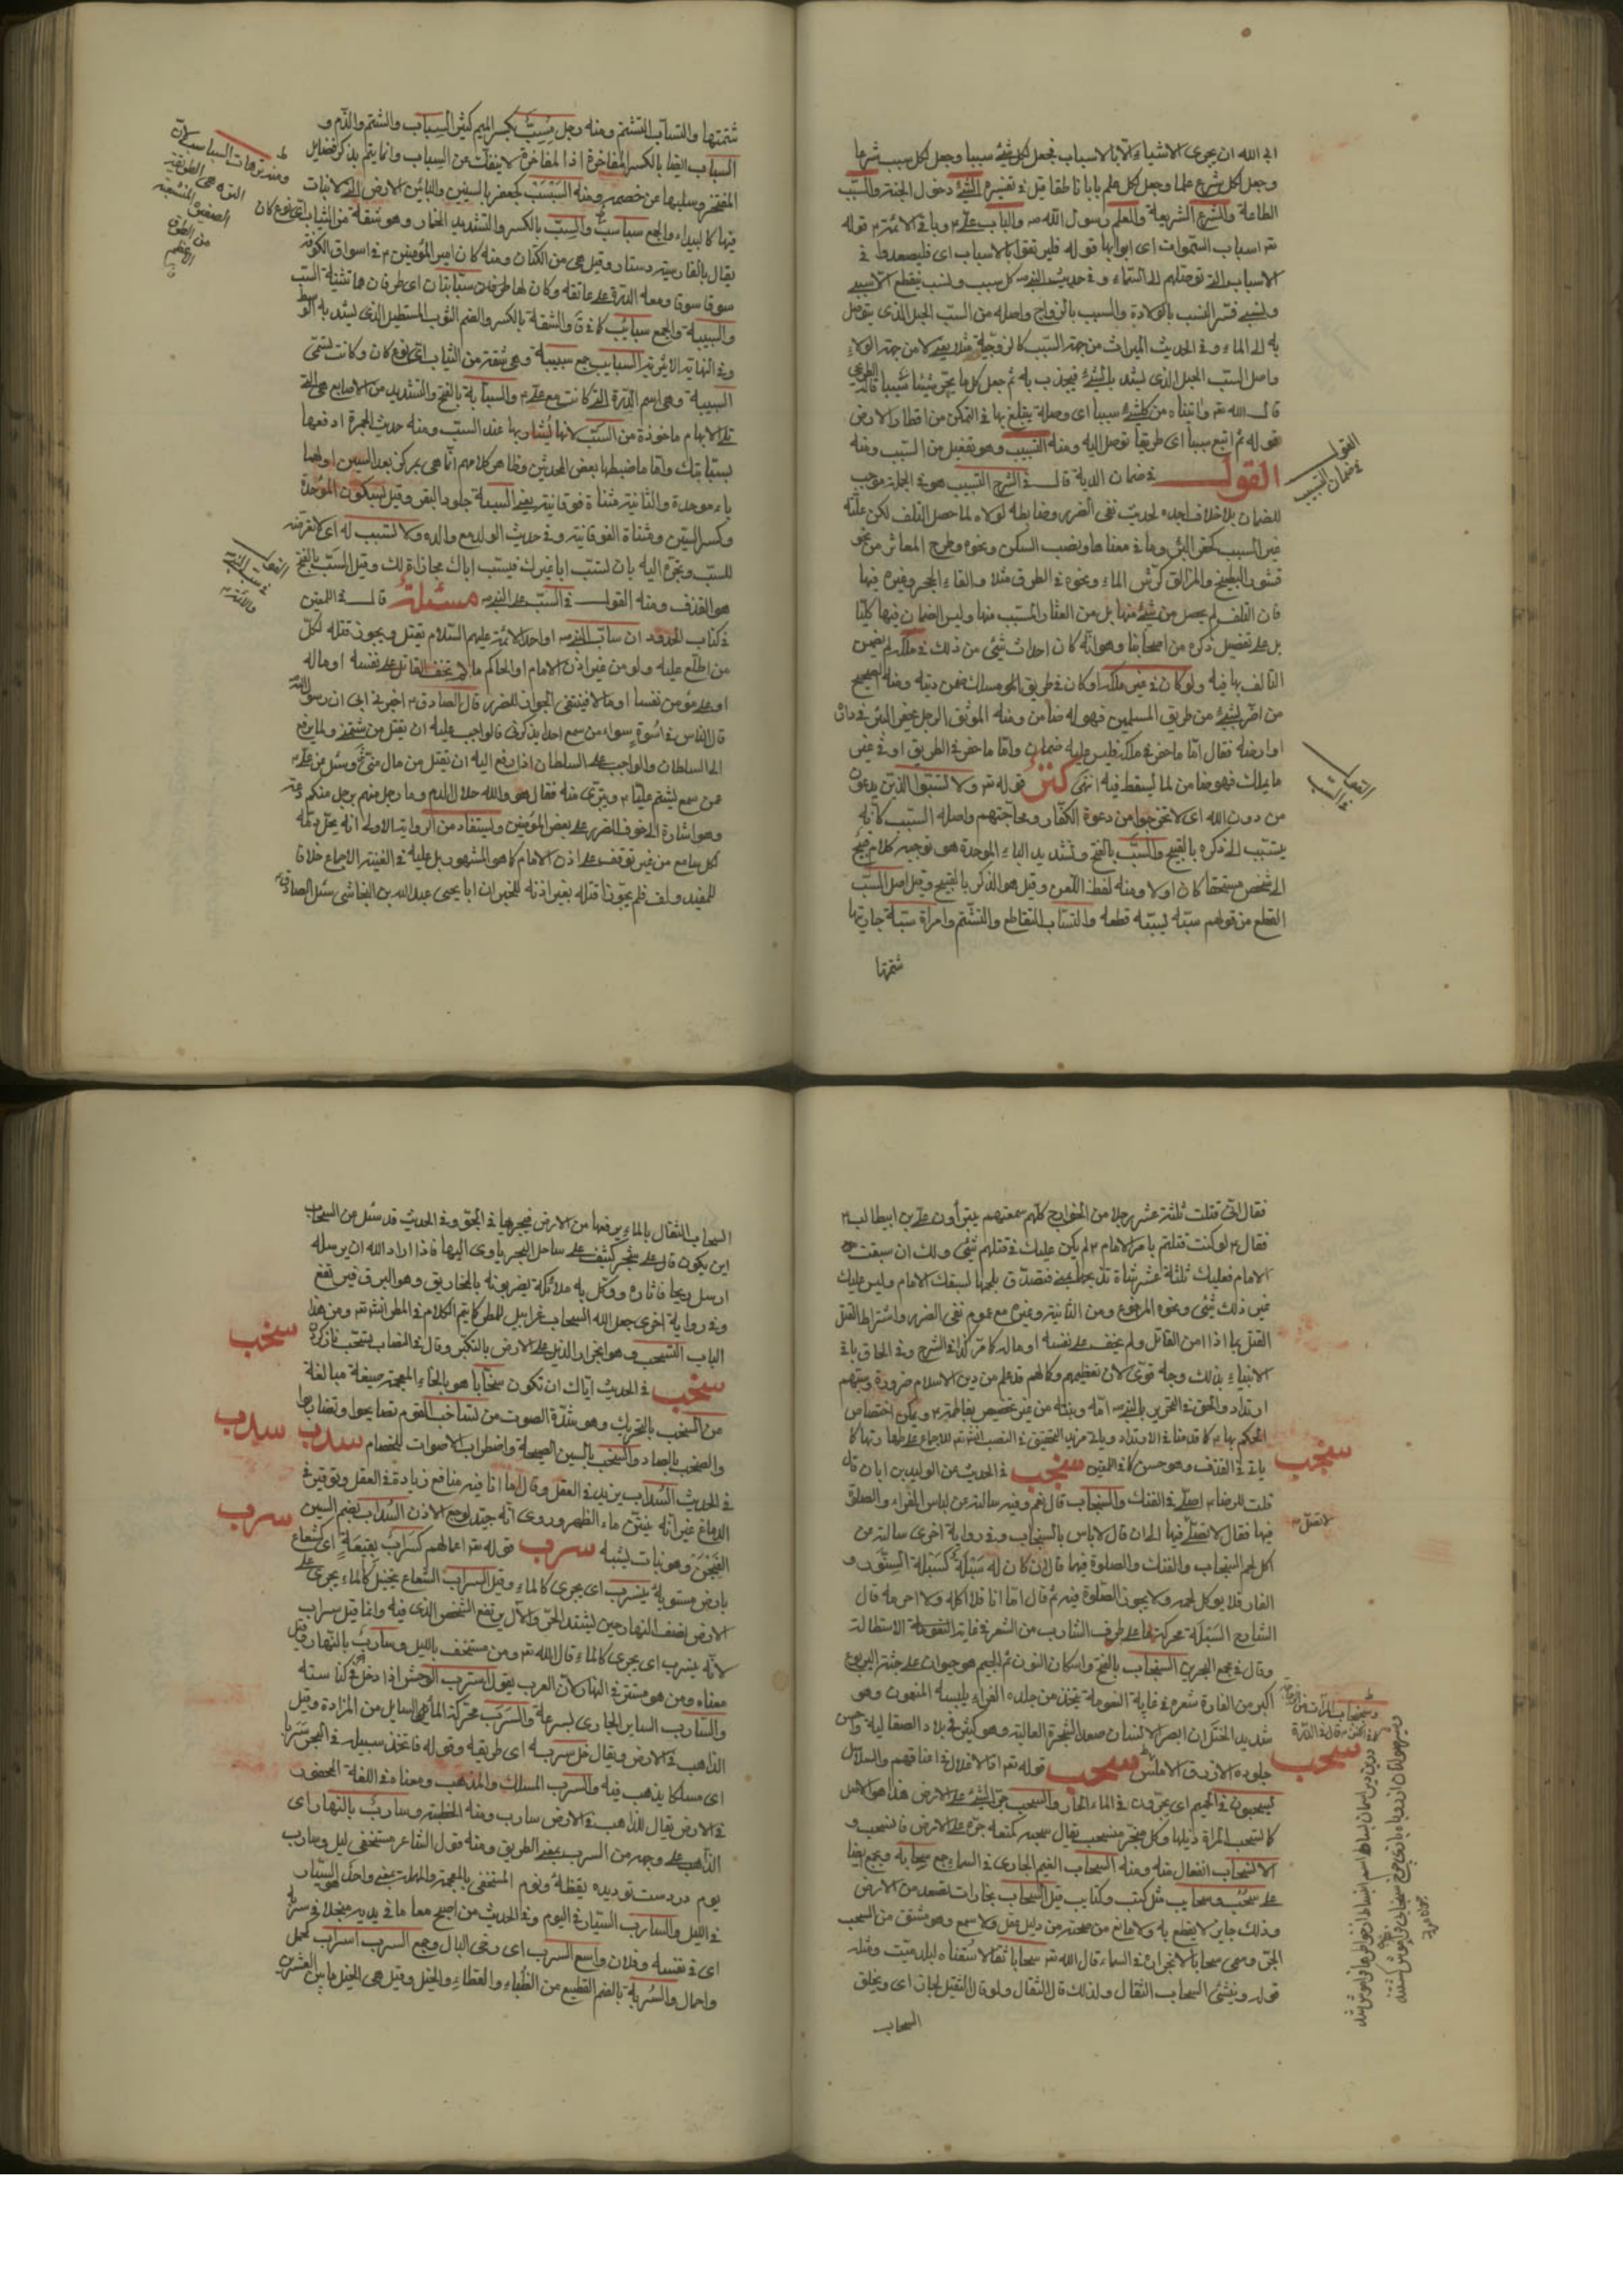 ابى الله ان يجرى الاشياء الا بالاسباب فجعل لكل شئ سببا وجعل لكل سبب شرعا
وجعل لكل شرع علما وجعل لكل علم بابا ناطقا قيل فى تفسيره الشئ دخول الجنة والسبب
الطاعة والشرع الشريعة والعلم رسول الله ص والباب على ع وباقى الائمة ع قوله
تع اسباب السموات اى ابوابها قوله فليرتقوا بالاسباب اى فليصعدوا فى
الاسباب التى توصلهم الى السماء وفى حديث النبى ص كل سبب ونسب ينقطع الا سببى
ونسبى فسر النسب بالولادة والسبب بالزواج واصله من السبب الحبل الذى يتوصل
به الى الماء وفى الحديث الميراث من جهة السبب كالزوجية مثلا يعنى لا من جهة الولاء
واصل السبب الحبل الذى يشد بالشئ فيجذب به ثم جعل كل ما يجر شيئا سببا قاله الطبرسى
قال الله تع واتيناه من كل شئ سببا اى وصلة يتبلغ بها فى التمكن من اقطار الارض
قوله ثم اتبع سببا اى طريقا توصل اليه ومنه التسبيب وهو تفعيل من السبب ومنه
القول فى ضمان الدية قال فى الشرح التسبيب هو فى الجملة موجب
للضمان بلا خلاف اجده لحديث نفى الضرر وضابطه لولاه لما حصل التلف لكن علته
غير السبب كحفر البئر وما فى معناها ونصب السكين ونحوه وطرح المعاثر من نحو
قشور البطيخ والمزالق كرش الماء ونحوه فى الطرق مثلا والقاء الحجر وغيره فيها
فان التلف لم يحصل من شئ منها بل من العثار المسبب منها وليس الضمان فيها كليا
بل على تفصيل ذكره من اصحابنا وهو انه كان احداث شئ من ذلك فى ملكه لم يضمن
التالف بها فيه ولو كان فى غير ملكه او كان فى طريق المسلك ضمن ديته ومنه الصحيح
من اضر بشئ من طريق المسلمين فهو له ضامن ومنه الموثق الرجل يحفر البئر فى داره
او ارضه فقال اما ما حفر فى ملكه فليس عليه ضمان واما ما حفر فى الطريق او فى غير
ما يملك فهو ضامن لما يسقط فيه انتهى كنز قوله تع ولا تسبوا الذين يدعون
من دون الله اى لا تخرجوا من دعوة الكفار ومحاجتهم واصله السبب كانه
يتسبب الى ذكره بالقبيح والسب بالفتح وتشديد الباء الموحدة هو توجيه كلام قبيح
الى شخص مستحقا كان او لا ومنه لفظ اللعن وقيل هو الذكر بالقبيح وقيل اصل السب
القطع من قولهم سبه يسبه قطعه والتساب التقاطع والتشتم وامرأة سبة جاريتها
شتمتها
القول
فى ضمان التسبيب
القول
فى السب
شتمتها والتساب التشتم ومنه رجل مسب بكسر الميم كثير السباب والشتم والذم و
السباب ايضا بالكسر المفاخرة اذ المفاخرة لا ينفك عن السباب وانما يتم بذكر فضايل
المفتخر وسلبها عن خصمه ومنه السبسب كجعفر بالسينين والبائين الارض التى لا نبات
فيها كالبيداء والجمع سباسب والسب بالكسر والتشديد الخمار وهو شقة من الثياب اى نوع كان
يقال بالفارسية دستار وقيل هى من الكتان ومنه كان امير المؤمنين ع فى اسواق الكوفة
سوقا سوقا ومعه الدرة على عاتقه وكان لها طرفان سبابتان اى طرفان هما تثنية السب
والسبيبة والجمع سبائب كما فى ق والشقة بالكسر والضم الثوب المستطيل الذى يشد به الوسط
وفى النهاية الاثيرية السبايب جمع سبيبة وهى شقة من الثياب اى نوع كان وكانت تسمى
السبيبة وهى اسم الدرة التى كانت مع على ع والسبابة بالفتح والتشديد من الاصابع هى التى
تلى الابهام ماخوذة من السب لانها يشار بها عند السب ومنه حديث الجمرة ادفعها
بسبابتك واما ما ضبطها بعض المحدثين وظاهر كلامهم
باء موحدة والثانية مثناة فوقانية يعنى السبتة جلود البقر وقيل بسكون الموحدة
وكسر السين ومثناة الفوقانية وفى حديث الولد مع والده ولا تستسب له اى لا تعرضه
للسب وتجره اليه بان تسب ابا غيرك فيسب اباك مجازاة لك وقيل السب بالفتح
هو القذف ومنه القول فى السب على النبى ص مسئلة قال فى اللمعتين
فى كتاب الحدود ان ساب النبى ص او احد الائمة عليهم السلام يقتل ويجوز قتله لكل
من اطلع عليه ولو من غير اذن الامام او الحاكم ما لم يخف القاتل على نفسه او ماله
او على مؤمن نفسا او مالا فينتفى الجواز للضرر قال الصادق ع اخبرنى ابى ان رسول الله ص
قال الناس فى اسوة سواء من سمع احدا يذكرنى فالواجب عليه ان يقتل من شتمنى ولا يرفع
الى السلطان والواجب على السلطان اذا رفع اليه ان يقتل من نال منى وسئل عن على ع
عمن سمع يشتم عليا ع ويبرئ منه فقال هو والله حلال الدم وما رجل منهم برجل منكم دعه
وهو اشارة الى خوف الضرر على بعض المؤمنين ويستفاد من الرواية الاولى انه يحل دمه
لكل سامع من غير توقف على اذن الامام كما هو المشهور بل عليه فى الغنية الاجماع خلافا
للمفيد ولف فلم يجوزا قتله بغير اذنه للخبر ان ابا بحير عبد الله بن النجاشى سئل الصادق ع
ومنه ترهات السباسب لان
الترهة هى الطريقة
الصغيرة المتشعبة
من الطرق
القول
فى سب النبى ص
والائمة ع
فقال انى قتلت ثلثة عشر رجلا من الخوارج كلهم سمعتهم يتبرأون على بن ابيطالب ع
فقال ع لو كنت قتلتهم بامر الامام ع لم يكن عليك فى قتلهم شئ ولكن سبقت
الامام فعليك ثلثة عشر شاة تذبحها بمنى فتصدق بلحمها لسبقك الامام وليس عليك
غير ذلك شئ ونحوه المرفوع ومن الثانية وغيره مع عموم نفى الضرر واشتراط القتل
القتل بما اذا امن القاتل ولم يخف على نفسه او ماله كما مر كذا فى الشرح وفى الحاق باقى
الانبياء بذلك وجه قوى لان تعظيمهم وكمالهم قد علم من دين الاسلام ضرورة وسبهم
ارتداد والحق فى التحرير بالنبى ص امه وبنته من غير تخصيص بفاطمة ع ويمكن اختصاص
الحكم بها ع
ياتى فى القذف وهو حسن كما فى اللمعتين سنجب فى الحديث عن الوليد بن ابان قال
قلت للرضا ع اصلى فى الفنك والسنجاب قال نعم وفيه سالته عن لباس الفراء والصلوة
فيها فقال لا تصل فيها الى ان قال لا باس بالسنجاب وفى رواية اخرى سالته عن
اكل لحم السنجاب والفنك والصلوة فيها قال ان كان له سبلة كسبلة السنور و
الفار فلا يؤكل لحمه ولا يجوز الصلوة فيه ثم قال اما انا فلا اكله ولا احرمه قال
الشارح السبلة محركة ما على طرف الشارب من الشعر فى غاية الاستطالة
وقال فى مجمع البحرين السنجاب بالفتح واسكان النون ثم الجيم هو حيوان على حد اليربوع
اكبر من الفارة شعره فى غاية النعومة يتخذ من جلده الفراء يلبسه المتنعمون وهو
شديد الختل ان ابصر الانسان صعد الشجرة العالية وهو كثير فى بلاد الصقالبة واحسن
جلوده الازرق الاملس سحب قوله تع اذ الاغلال فى اعناقهم والسلاسل
يسحبون فى الحميم اى يجرون فى الماء الحار والسحب جر الشئ على الارض هذا هو الاصل
كسحب المراة ذيلها وكل منجر منسحب يقال سحبه كمنعه جره على الارض فانسحب و
الانسحاب انفعال منه ومنه السحاب الغيم الجارى فى السماء جمع سحابة ويجمع ايضا
على سحب وسحايب مثل كتب وكتايب قيل السحاب بخارات تصعد من الارض
وذلك جايز لا يقطع به ولا مانع من صحته من دليل عقل ولا سمع وهو مشتق من السحب
الجر وسمى سحابا لانجراره فى السماء قال الله تع سحابا ثقالا سقناه لبلد ميت ومثله
قوله وينشئ السحاب الثقال ولذلك قال الثقال ولو قال الثقيل لجاز اى ويخلق
السحاب
سنجب
لا تصل
سحب
السحاب الثقال بالماء يرفعها من الارض فيجريها فى الجو وفى الحديث قد سئل عن السحاب
اين يكون قال على شجر كثيف على ساحل البحر ياوى اليها فاذا اراد الله ان يرسله
ارسل ريحا فاثاره ووكل به ملائكة يضربونه بالمخاريق وهو البرق فيرتفع
وفى رواية اخرى جعل الله السحاب غرابيل للمطر كما يتم الكلام فى المطر انشاء تع ومن هذا
الباب التسحب وهو انجرار الذيل على الارض بالتكبر وقال فى المصاب
سخب فى الحديث اياك ان تكون سخابا هو بالخاء المعجمة صيغة مبالغة
من السخب بالتحريك وهو شدة الصوت من تساخب القوم تصايحوا وتضاربوا
والصخب بالصاد والسخب بالسين الصيحة واضطراب الاصوات للخصام سدب
فى الحديث السداب يزيد فى العقل وقال اما انا فيه منافع زيادة فى العقل وتوفير فى
الدماغ غير انه ينتن ماء الظهر وروى انه جيد لوجع الاذن السداب بضم السين
الفيجن وهو نبات يشبه سرب قوله تع اعمالهم كسراب بقيعة اى كشعاع
بارض مستوية يسرب اى يجرى كالماء وقيل السراب الشعاع يتخيل كالماء يجرى على
الارض نصف النهار حين يشتد الحر والال يرتفع الشخص الذى فيه وانما قيل سراب
لانه يسرب اى يجرى كالماء قال الله تع ومن مستخف بالليل وسارب بالنهار قيل
معناه ومن هو مستتر فى النهار لان العرب يقول انسرب الوحش اذا دخل فى كناسته
والسارب الساير الجارى بسرعة والسرب محركة الماء السايل من المزادة وقيل
الذاهب فى الارض ويقال خل سربه اى طريقه وقوله فاتخذ سبيله فى البحر سربا
اى مسلكا يذهب فيه والسرب المسلك والمذهب ومعناه فى اللغة
فى الارض يقال للذاهب فى الارض سارب ومنه الخطبة وسارب بالنهار اى
الذاهب على وجهه من السرب بمعنى الطريق ومنه قول الشاعر مستخفى ليل وسارب
يوم در دست تو ديده يقظه ونوم المستخفى بالمعجمة والمهملة بمعنى واحد
فى الليل والسارب السيار فى اليوم وفى الحديث من اصبح معافا فى بدنه مخلا فى سربه
اى فى نفسه وفلان واسع السرب اى رخى البال وجمع السرب اسراب كحمل
واحمال والسربة بالضم القطيع من الظباء والقطاء والخيل وقيل هى الخيل ما بين العشرين
سخب
سدب
سرب